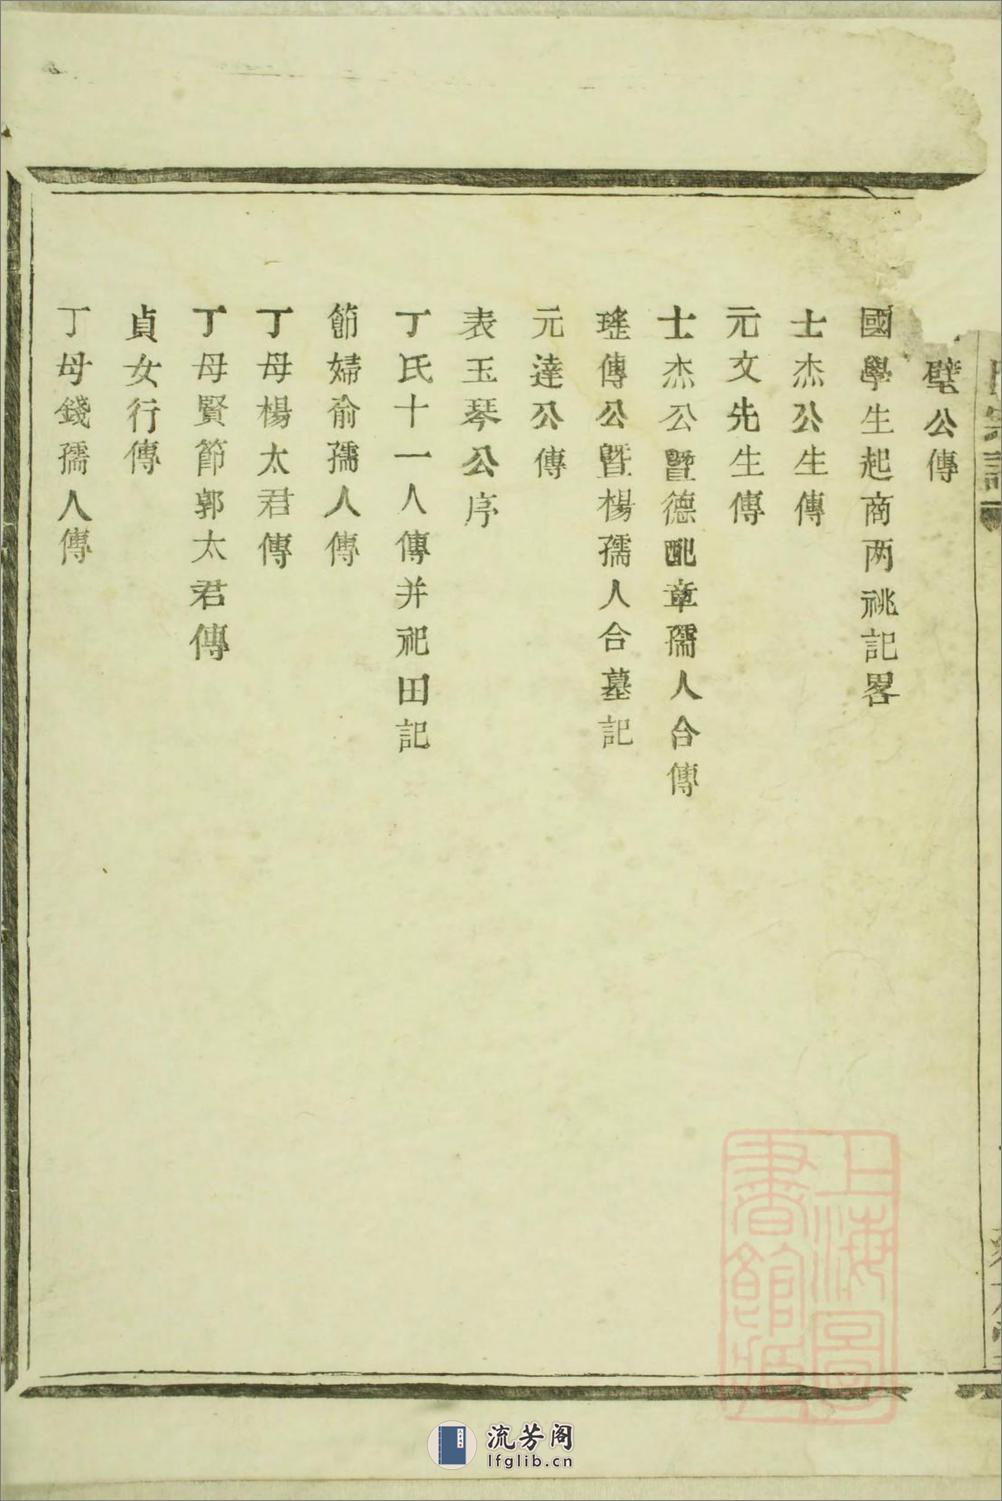 璧公傳
國學生起商两祧記畧
士杰公生傳
元文先生傳
士杰公暨德配章孺人合傳
瑤傳公暨楊孺人合墓記
元達公傳
表玉琴公序
丁氏十一人傳并祀田記
節婦俞孺人傳
丁母楊太君傳
丁母賢節郭太君傳
貞女行傳
丁母錢孺人傳
上海圖
書館藏
流芳阁
lfglib.cn